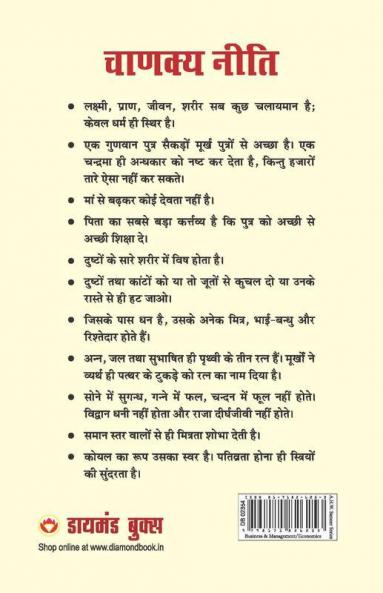 चाणक्य नीति
• लक्ष्मी, प्राण, जीवन, शरीर सब कुछ चलायमान है;
केवल धर्म ही स्थिर है।
• एक गुणवान पुत्र सैकड़ों मूर्ख पुत्रों से अच्छा है। एक
चन्द्रमा ही अन्धकार को नष्ट कर देता है, किन्तु हजारों
तारे ऐसा नहीं कर सकते।
• मां से बढ़कर कोई देवता नहीं है।
• पिता का सबसे बड़ा कर्त्तव्य है कि पुत्र को अच्छी से
अच्छी शिक्षा दे।
• दुष्टों के सारे शरीर में विष होता है।
• दुष्टों तथा कांटों को या तो जूतों से कुचल दो या उनके
रास्ते से ही हट जाओ।
• जिसके पास धन है, उसके अनेक मित्र, भाई-बन्धु और
रिश्तेदार होते हैं।
• अन्न, जल तथा सुभाषित ही पृथ्वी के तीन रत्न हैं। मूर्खों ने
व्यर्थ ही पत्थर के टुकड़े को रत्न का नाम दिया है।
• सोने में सुगन्ध, गन्ने में फल, चन्दन में फूल नहीं होते।
विद्वान धनी नहीं होता और राजा दीर्घजीवी नहीं होते।
• समान स्तर वालों से ही मित्रता शोभा देती है।
• कोयल का रूप उसका स्वर है। पतिव्रता होना ही स्त्रियों
की सुंदरता है।
डायमंड बुक्स
Shop online at www.diamondbook.in
Business & Management/Economics